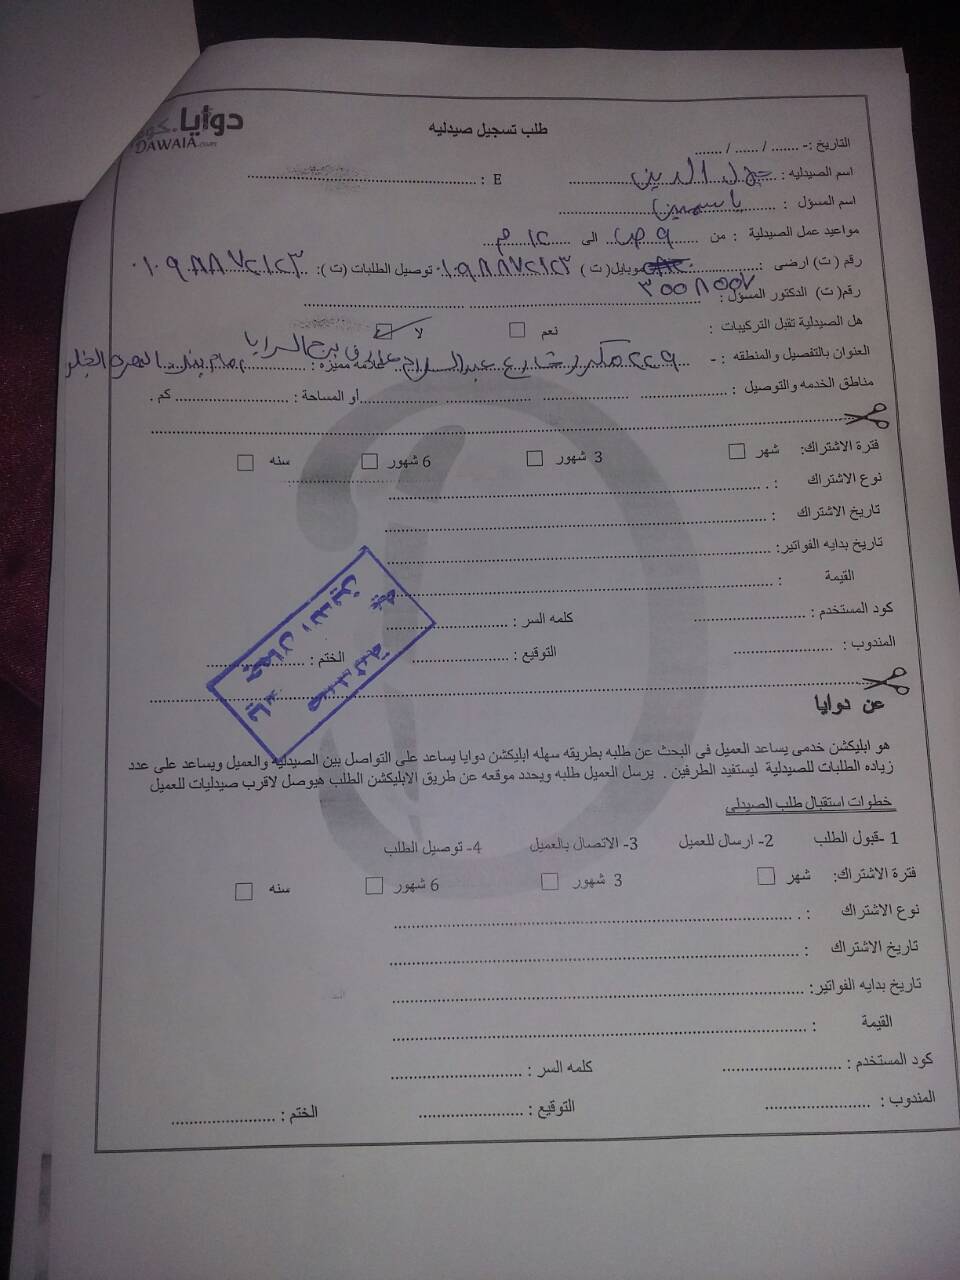 دوايا.كوم
DAWAIA.com
طلب تسجيل صيدليه
التاريخ :- ....... / ...... / .......
اسم الصيدليه : جمال الدين E :
اسم المسؤل : ياسمين
مواعيد عمل الصيدلية : من ٩ ص الى ١٢ م
رقم ( ت) ارضى : موبايل( ت ) ٠١٠٩٨٨٧٢١٢٣ توصيل الطلبات (ت ): ٠١٠٩٨٨٧٢١٢٣
٣٥٥٨٥٥٧
رقم( ت) الدكتور المسؤل :
هل الصيدلية تقبل التركيبات : نعم لا
العنوان بالتفصيل والمنطقه :- ٢٢٩ مكرر شارع عبدالسلام علامه مميزه : برج السرايا امام
مناطق الخدمه والتوصيل : أو المساحة : كم .
فترة الاشتراك: شهر 3 شهور 6 شهور سنه
نوع الاشتراك : .
تاريخ الاشتراك :
تاريخ بدايه الفواتير:
القيمة :
كود المستخدم : كلمه السر :
المندوب : التوقيع : الختم :
صيدلية
جمال الدين
عن دوايا
هو ابليكشن خدمى يساعد العميل فى البحث عن طلبه بطريقه سهله ابليكشن دوايا يساعد على التواصل بين الصيدليه والعميل ويساعد على عدد
زياده الطلبات للصيدلية ليستفيد الطرفين . يرسل العميل طلبه ويحدد موقعه عن طريق الابليكشن الطلب هيوصل لاقرب صيدليات للعميل
خطوات استقبال طلب الصيدلى
1 -قبول الطلب 2- ارسال للعميل 3- الاتصال بالعميل 4- توصيل الطلب
فترة الاشتراك: شهر 3 شهور 6 شهور سنه
نوع الاشتراك : .
تاريخ الاشتراك :
تاريخ بدايه الفواتير:
القيمة :
كود المستخدم : كلمه السر :
المندوب : التوقيع : الختم :